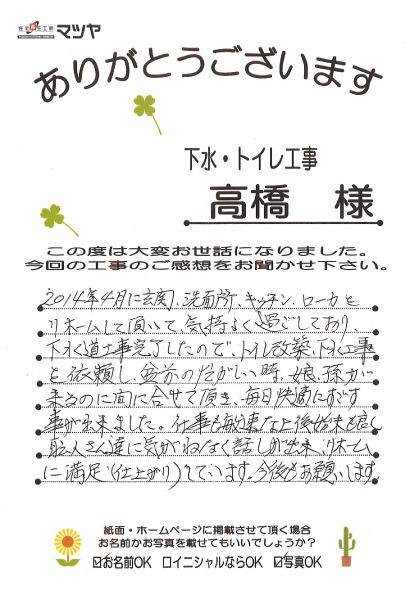 住宅再生工房 マツヤ
ありがとうございます
下水・トイレ工事
高橋 様
この度は大変お世話になりました。
今回の工事のご感想をお聞かせ下さい。
2014年4月に玄関、洗面所、キッチン、ローカと
リホームして頂いて、気持よく過ごしており、
下水道工事完了したので、トイレ改築、下水工事
を依頼し、盆前の忙がしい時、娘、孫が
来るのに間に合せて頂き、毎日快適にすごす
事が出来ました。仕事も敏速な上後始末も良く
職人さん達に気がねなく話しが出来、リホーム
に満足(仕上がり)しています。今後もお願いします。
紙面・ホームページに掲載させて頂く場合
お名前かお写真を載せてもいいでしょうか?
☑お名前OK ロイニシャルならOK ☑写真OK